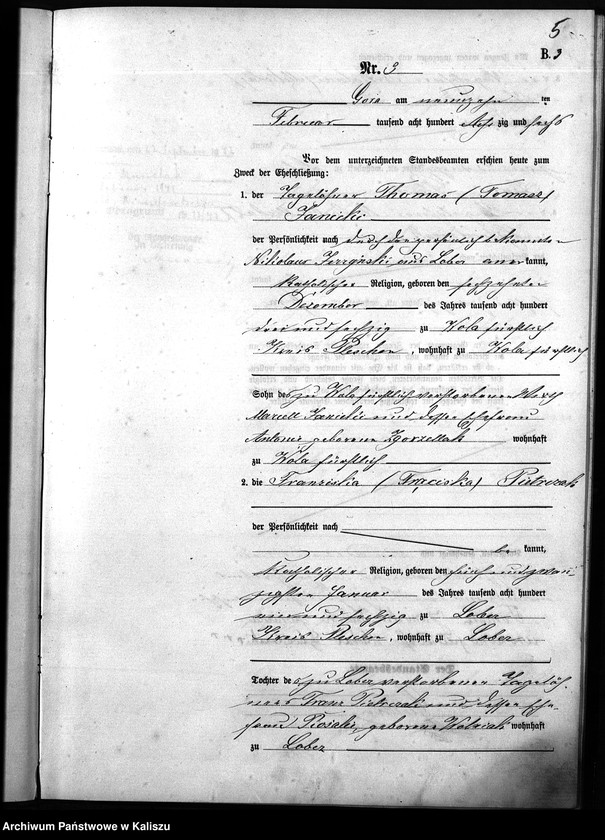 5
B. 3
Nr. 3
Gora am neunzehn ten
Februar tausend acht hundert acht zig und sechs
Vor dem unterzeichneten Standesbeamten erschien heute zum
Zweck der Eheschließung:
1. der Tagelöhner Thomas (Tomasz)
Janicki
der Persönlichkeit nach durch den persönlich bekannten
Nikolaus aus Lober aner kannt,
katholischer Religion, geboren den sechzehnten
Dezember des Jahres tausend acht hundert
drei und sechzig zu Wola fürstlich
Kreis Pleschen, wohnhaft zu Wola fürstlich
Sohn des zu Wola fürstlich verstorbenen
Marcell Janicki und dessen Ehefrau
Antonie geborene wohnhaft
zu Wola fürstlich
2. die Franziska (Frąciska) Pietrzak
der Persönlichkeit nach
be kannt,
katholischer Religion, geboren den fünf und zwan-
zigsten Januar des Jahres tausend acht hundert
vier und sechzig zu Lober
Kreis Pleschen, wohnhaft zu Lober
Tochter des zu Lober verstorbenen Tagelöh-
ners Franz Pietrzak und dessen Ehe-
frau geborene wohnhaft
zu Lober
Archiwum Państwowe w Kaliszu